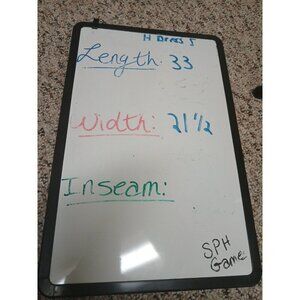 Length: 33
Width: 21 1/2
Inseam:
SPH
Game